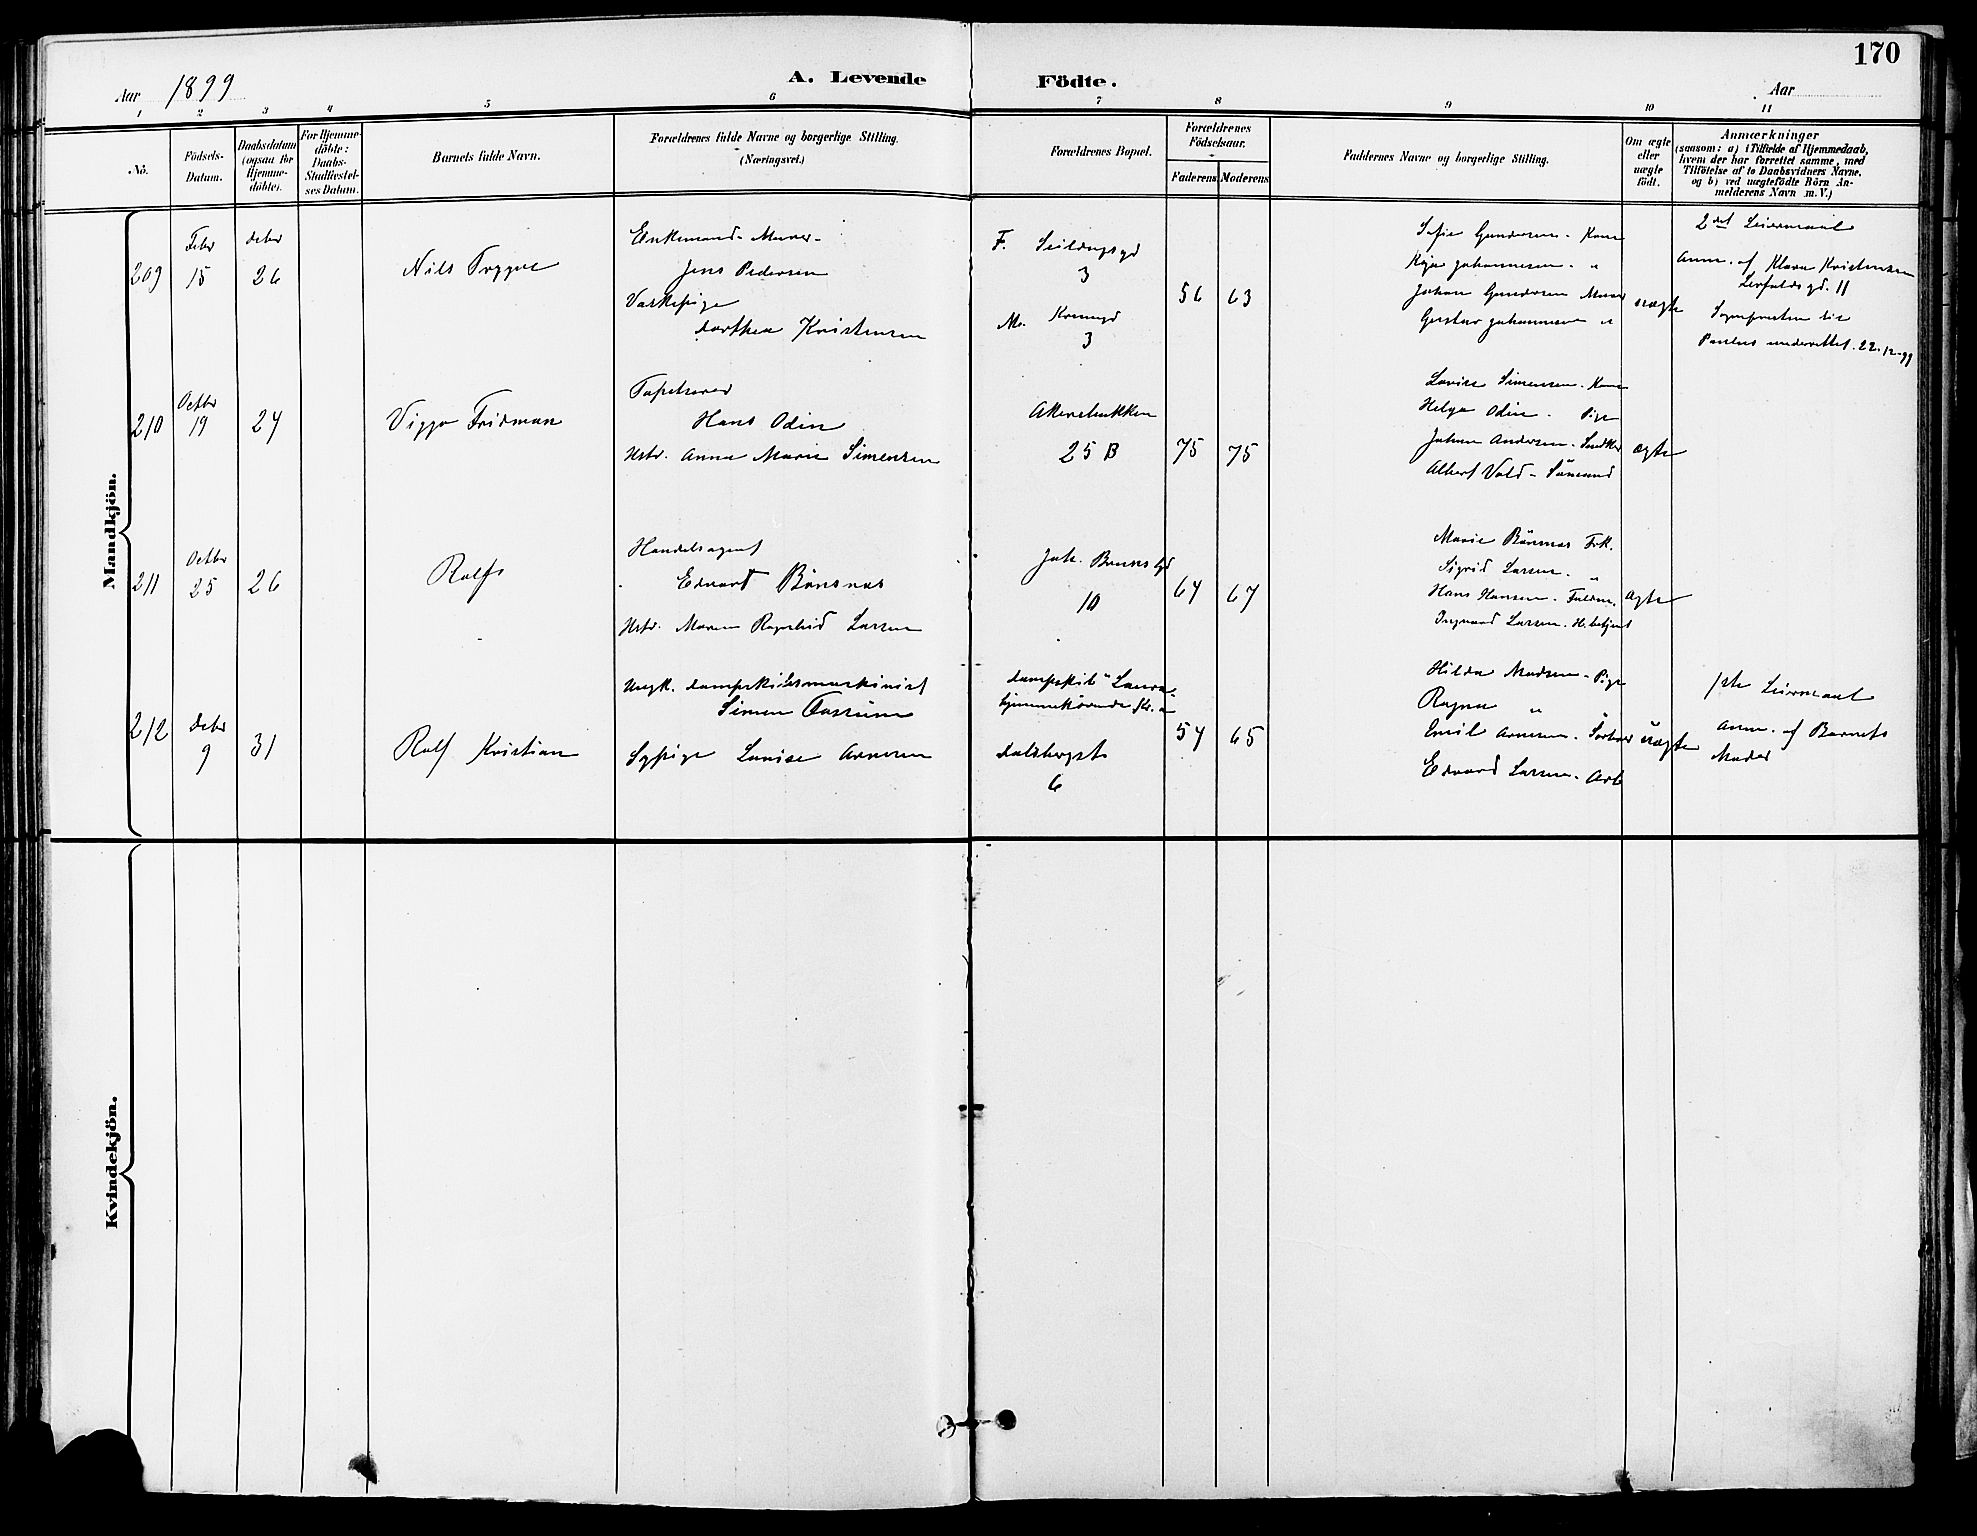 170
Aar 1899
A. Levende Födte.
Aar
1 2 3 4 5 6 7 8 9 10 11
No.
Födsels-
Datum.
Daabsdatum
(ogsaa for
Hjemme-
döbte).
For Hjemme-
döbte:
Daabs-
Stadfæstel-
ses Datum.
Barnets fulde Navn.
Forældrenes fulde Navne og borgerlige Stilling.
(Næringsvei.)
Forældrenes Bopæl.
Forældrenes
Födselsaar.
Faderens Moderens
Faddernes Navne og borgerlige Stilling.
Om ægte
eller
uægte
född.
Anmærkninger
(saasom: a) i Tilfælde af Hjemmedaab,
hvem der har forrettet samme, med
Tilföielse af to Daabsvidners Navne,
og b) ved uægtefödte Börn An-
melderens Navn m. V.)
Mandkjön.
209
Febr
15
Debr
26
Nils Tryggve
Enkemand. Murer.
Jens Pedersen
Vaskepige
Dorthea Kristensen
F. Seildugsgd
3
M.
3
56 63
Sofie Gundersen. Kone
Johannesen. "
Johan Gundersen Murer
Gustav Johannesen "
uægte
2det Leiermaal
Anm. af Klara Kristensen
Lerfaldsgd. 11
Sognepresten til
Paulus underrettet. 22-12-99
210
Octbr
19
24
Viggo Fridman
Tapetserer
Hans Odin
Hstr. Anna Marie Simensen
Akersbakken
25 B
75 75
Lovise Simensen. Kone
Helga Odin. Pige
Johan Andersen. Snedker
Albert Vold. Sömand
ægte
211
Octbr
25
26
Rolf
Handelsagent
Edvart Bönsnæs
Hstr. Maren Ragnhild Larsen
Joh. Bruns gd
10
64 67
Marie Bönsnæs Frk.
Sigrid Larsen. "
Hans Hansen. Fuldm.
Ingvard Larsen. H.betjent
ægte
212
Debr
9
31
Rolf Kristian
Ungk. Dampskibsmaskinist
Simen Aassum
Sypige Lovise Arnesen
Dampskib "Laura"
hjemmehörende Kr.a
Dalsbergst
6
54 65
Hilda Madsen. Pige
Ragna " "
Emil Arnesen.
Edvard Larsen. Arb
uægte
1ste Leiermaal
Anm. af Barnets
Moder
Kvindekjön.